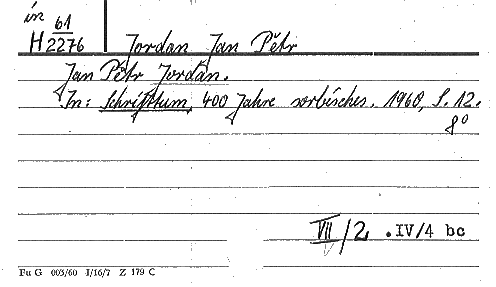 in 61
H 2276 Jordan, Jan Pětr
Jan Pětr Jordan.
In: Schrifttum, 400 Jahre sorbisches. 1960, S. 12.
8°
VII/2 .IV/4 bc
Fu G 003/60 I/16/7 Z 179 C